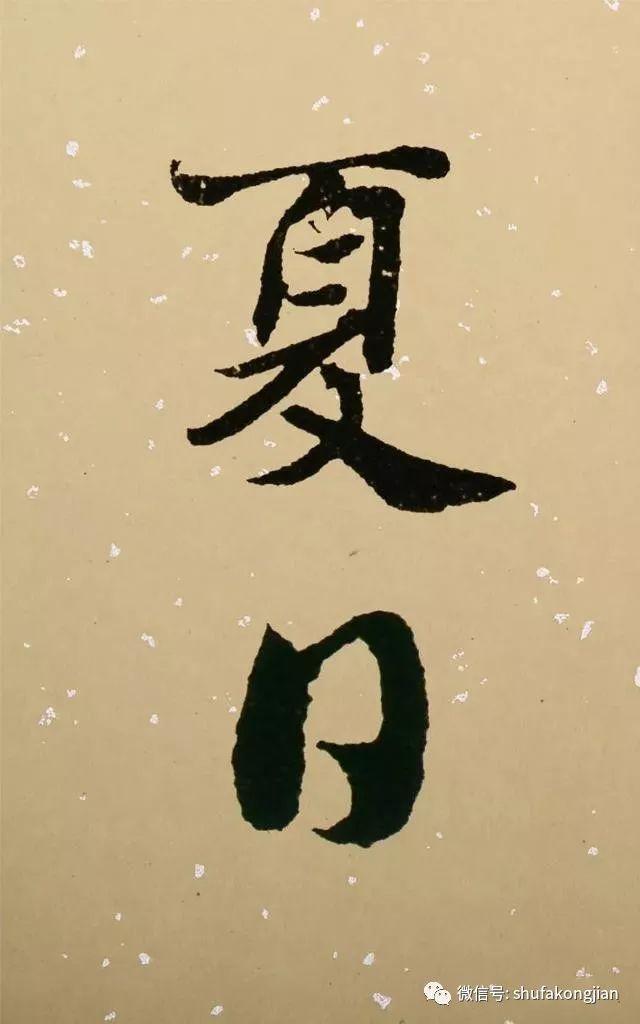 夏日
微信号: shufakongjian